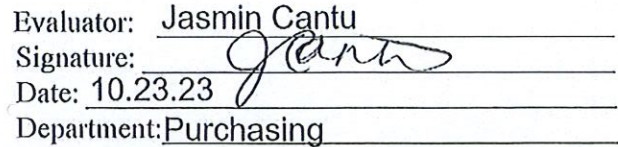 Evaluator: Jasmin Cantu
Signature: JCantu
Date: 10.23.23
Department: Purchasing